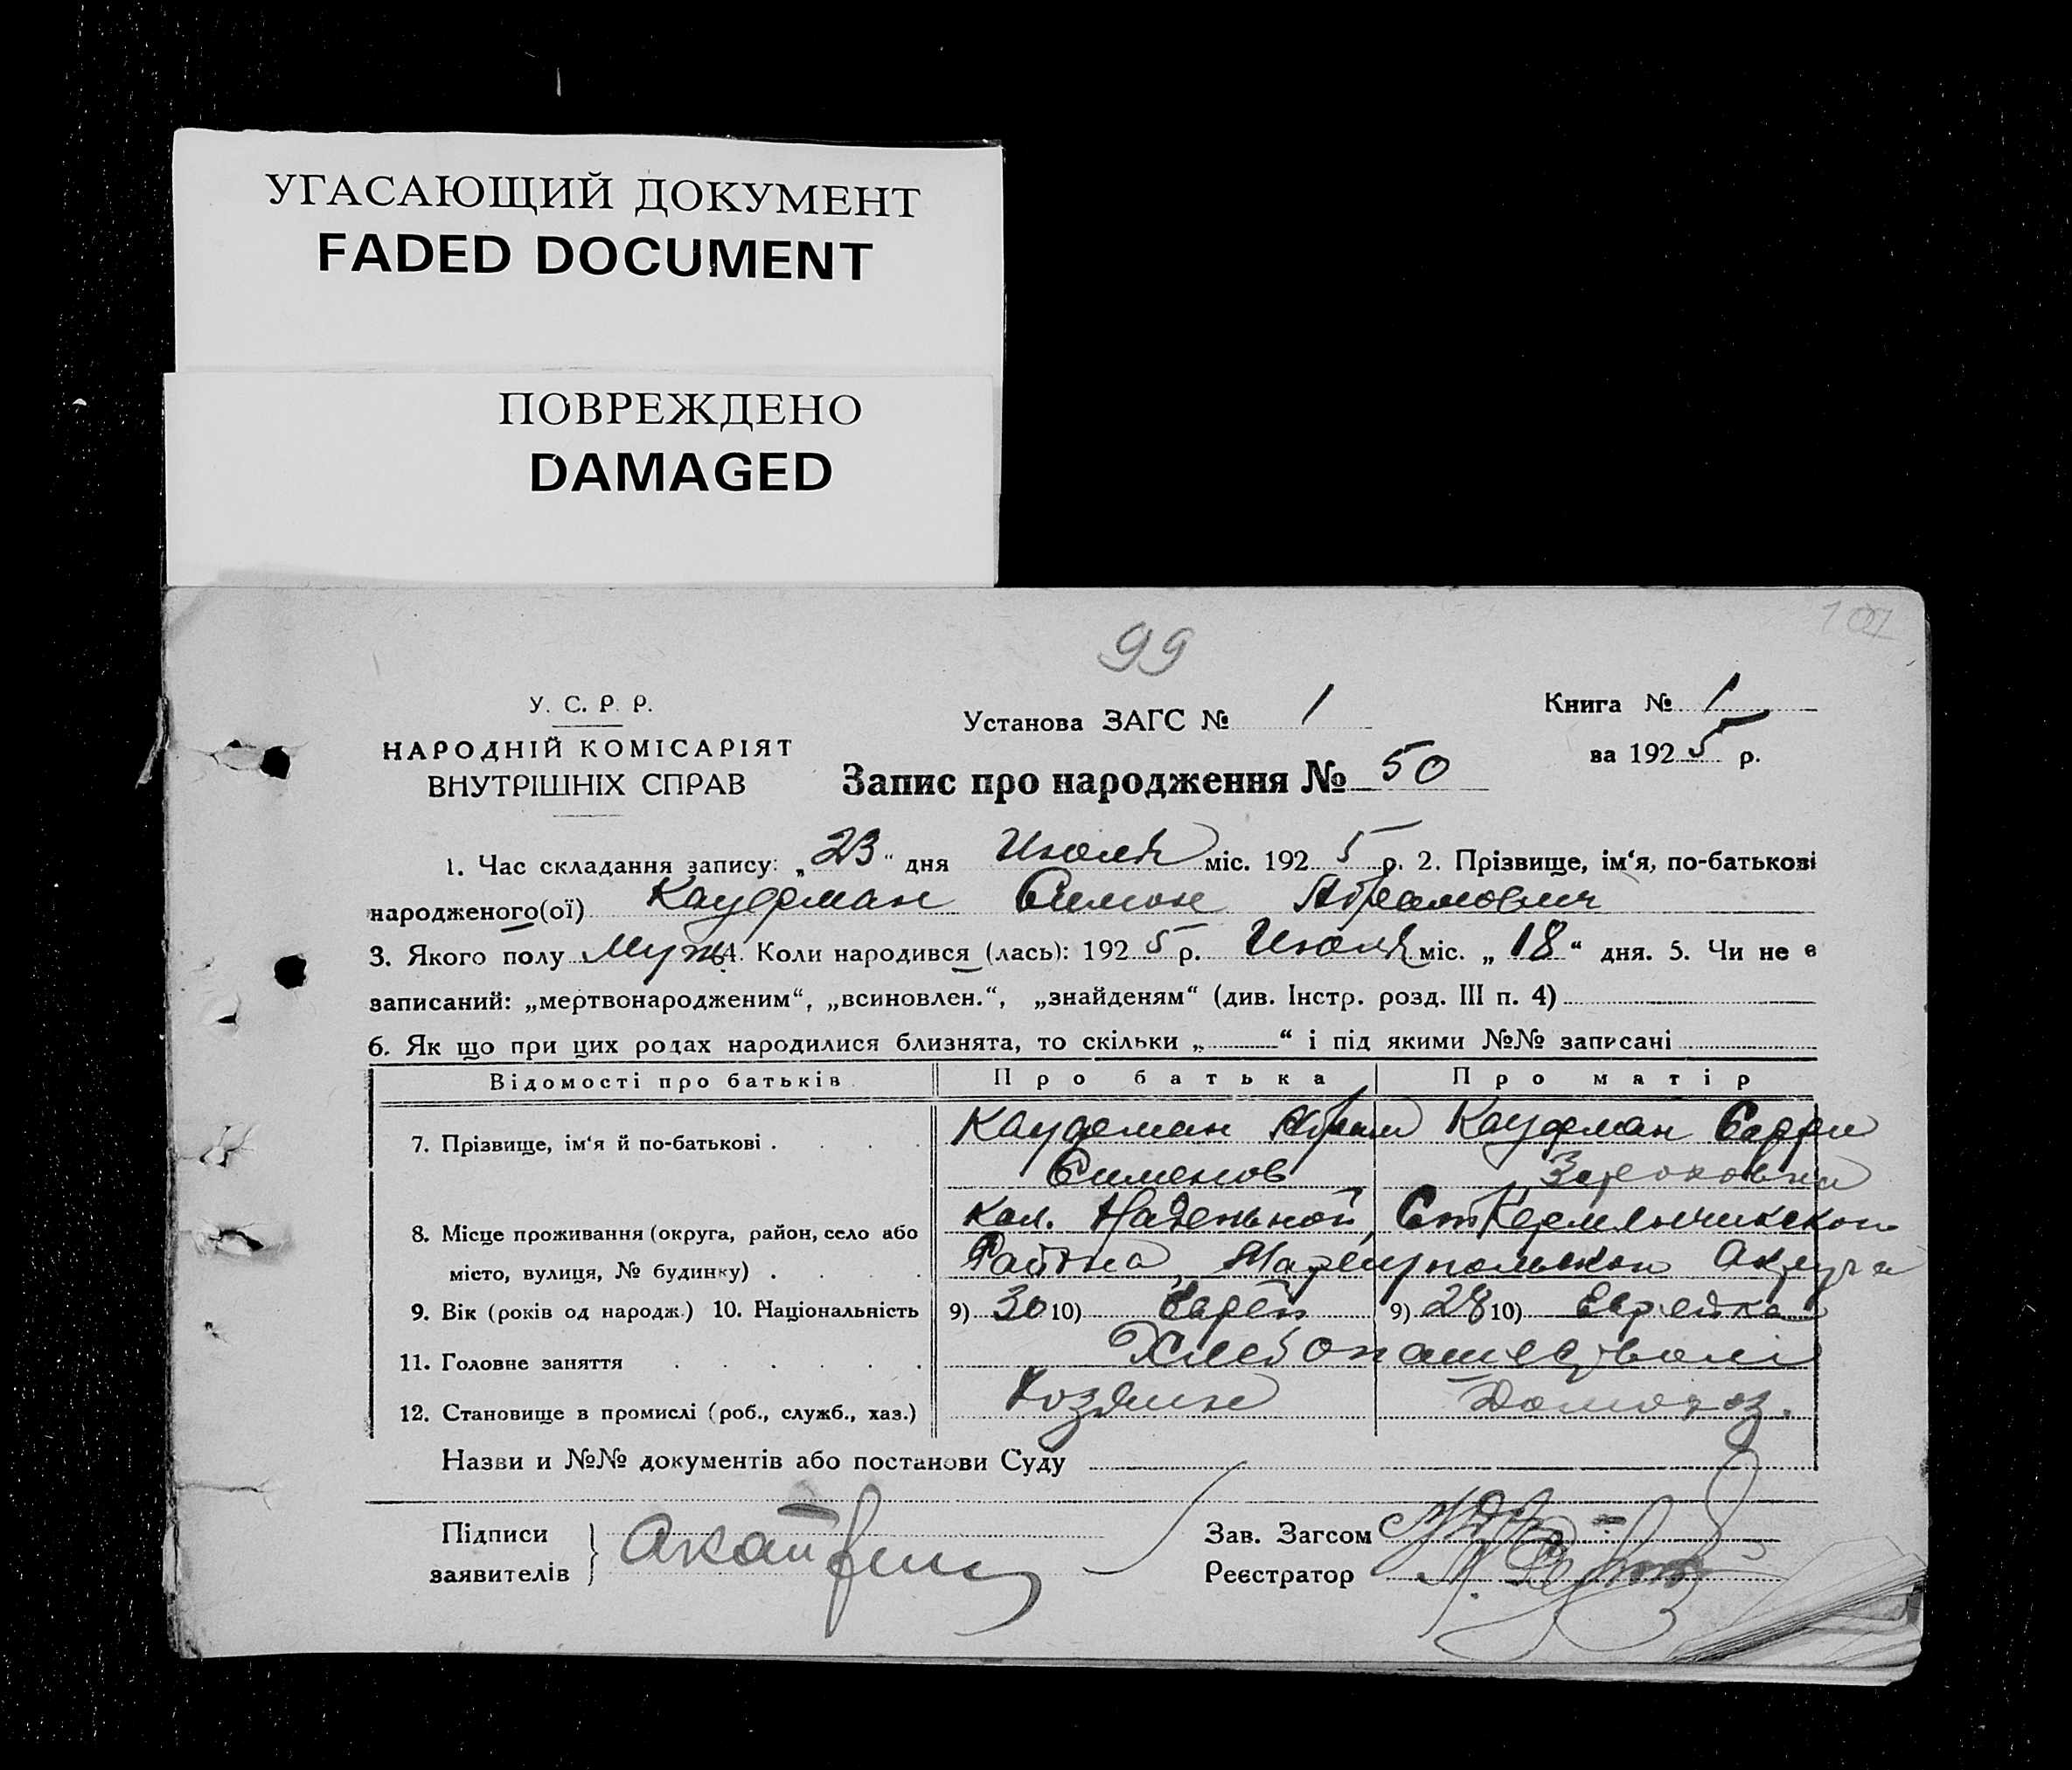 УГАСАЮЩИЙ ДОКУМЕНТ
FADED DOCUMENT
ПОВРЕЖДЕНО
DAMAGED
101
99
У. С. Р. Р.
НАРОДНІЙ КОМІСАРІЯТ
ВНУТРІШНІХ СПРАВ
Установа ЗАГС № 1
Книга № 1
за 1925 р.
Запис про народження № 50
1. Час складання запису: „23“ дня Июля міс. 1925 р. 2. Прізвище, ім‘я, по-батькові
народженого(ої) Кауфман Симон Абрамович
3. Якого полу Муж. 4. Коли народився (лась): 1925 р. Июля міс. „18“ дня. 5. Чи не є
записаний: „мертвонародженим“, „всиновлен.“, „знайденям“ (див. Інстр. розд. III п. 4)
6. Як що при цих родах народилися близнята, то скільки „ “ і під якими №№ записані
Відомості про батьків Про батька Про матір
7. Прізвище, ім‘я й по-батькові Кауфман Абрам Кауфман Сарри
Сименов
8. Місце проживання (округа, район, село або кол. Надежной СтКерменчикскон
місто, вулиця, № будинку) Района, Мариупольскон Округа
9. Вік (років од народж.) 10. Національність 9) 30 10) Еврей 9) 28 10) Еврейка
11. Головне заняття
12. Становище в промислі (роб., служб., хаз.) Хозяин Домохоз.
Назви и №№ документів або постанови Суду
Підписи
заявителів
Зав. Загсом
Реєстратор